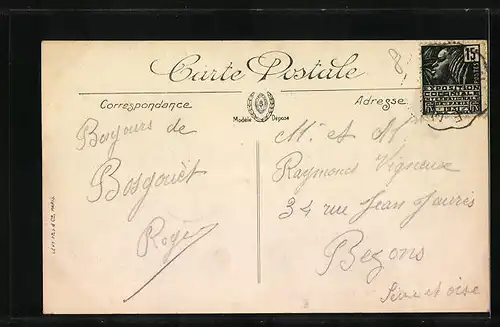 Carte Postale
Correspondance
Modèle Déposé
Adresse
15c
EXPOSITION
COLONIALE
Bojours de
Bosgouët
Roger
Mr et M
Raymond Vigneuse
34 rue Jean Jaurès
Bezons
Seine et oise